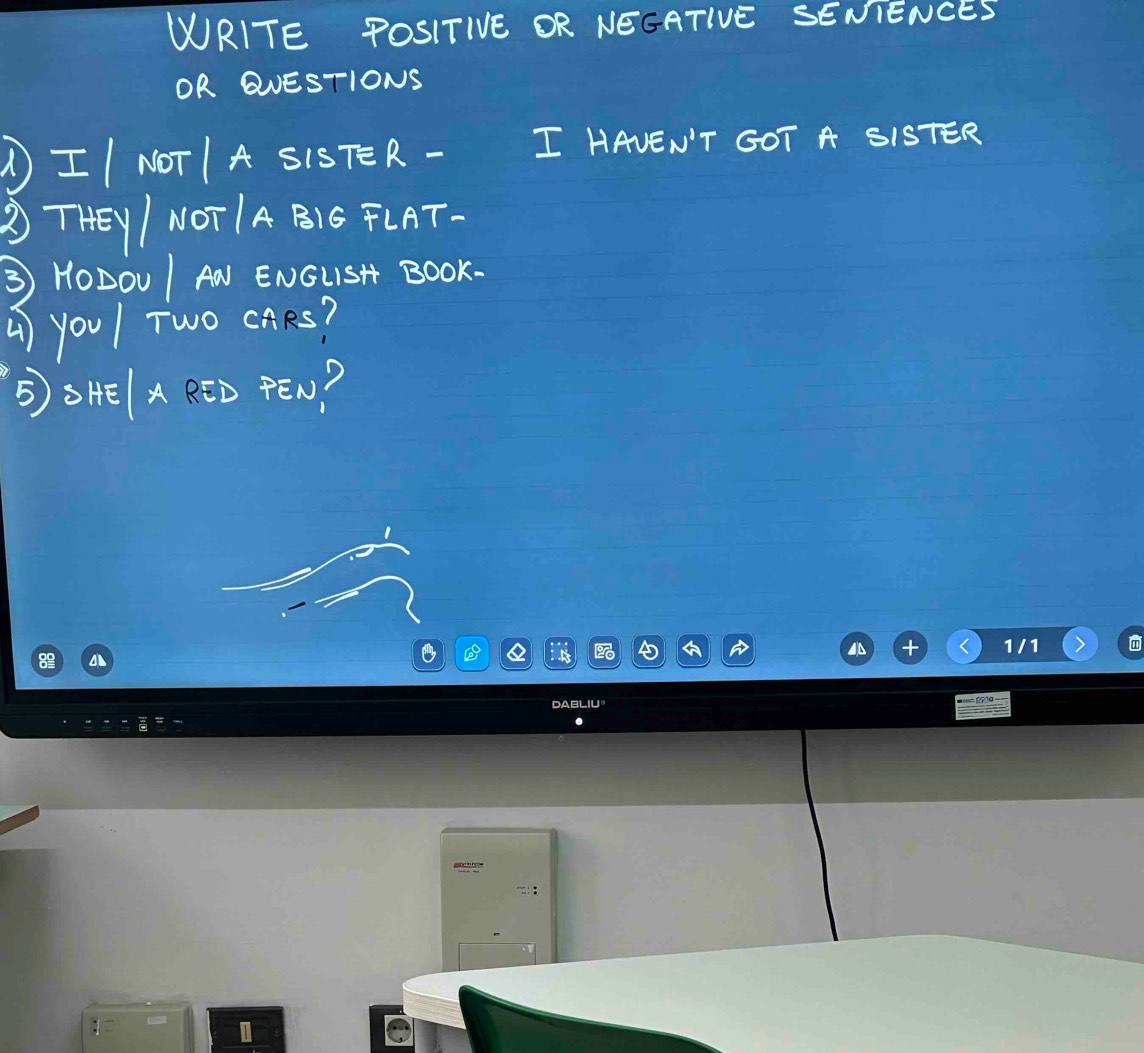 WRITE POSITIVE OR NEGATIVE SENTENCES
OR QUESTIONS
1) I / NOT / A SISTER - I HAVEN'T GOT A SISTER
2) THEY / NOT / A BIG FLAT-
3) MODOU / AN ENGLISH BOOK-
4) YOU / TWO CARS?
5) SHE / A RED PEN?
1/1
DABLIU